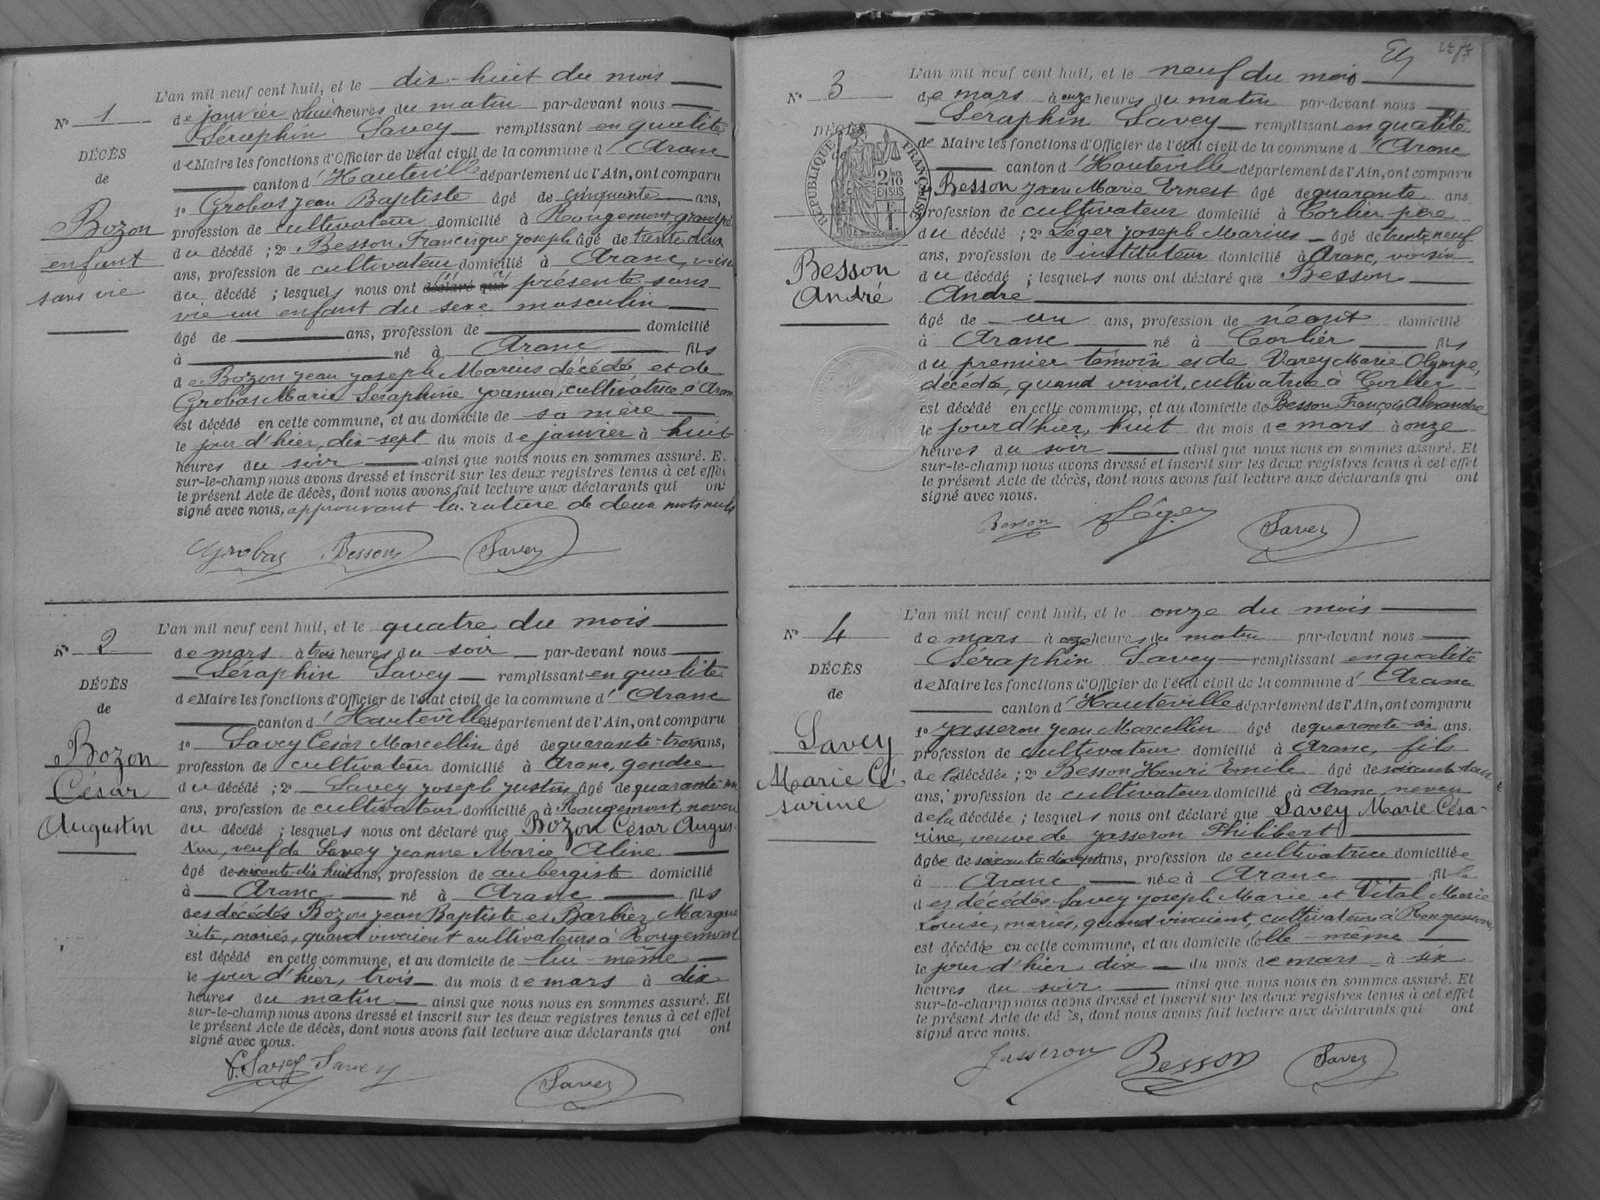 N° 1
DÉCÈS
de
Bozon
enfant
sans vie
L'an mil neuf cent huit, et le dix-huit du mois
de janvier à huit heures du matin par-devant nous
Séraphin Savey remplissant en qualité
de Maire les fonctions d'Officier de l'état civil de la commune d'Aranc
canton d'Hauteville département de l'Ain, ont comparu
1° Grobas Jean Baptiste âgé de cinquante ans,
profession de cultivateur domicilié à Rougemont, grand père
du décédé ; 2° Besson Francisque Joseph âgé de trente deux
ans, profession de cultivateur domicilié à Aranc, voisin
du décédé ; lesquels nous ont déclaré que présenté sans
vie un enfant du sexe masculin
âgé de ans, profession de domicilié
à né à Aranc fils
de Bozon Jean Joseph Marius décédé, et de
Grobas Marie Séraphine Joanna, cultivatrice à Aranc
est décédé en cette commune, et au domicile de sa mère
le jour d'hier, dix-sept du mois de janvier à huit
heures du soir ainsi que nous nous en sommes assuré. Et
sur-le-champ nous avons dressé et inscrit sur les deux registres tenus à cet effet
le présent Acte de décès, dont nous avons fait lecture aux déclarants qui ont
signé avec nous, approuvant la rature de deux mots nuls
Grobas Besson Savey
N° 2
DÉCÈS
de
Bozon
César
Augustin
L'an mil neuf cent huit, et le quatre du mois
de mars à trois heures du soir par-devant nous
Séraphin Savey remplissant en qualité
de Maire les fonctions d'Officier de l'état civil de la commune d'Aranc
canton d'Hauteville département de l'Ain, ont comparu
1° Savey César Marcellin âgé de quarante-trois ans,
profession de cultivateur domicilié à Aranc, gendre
du décédé ; 2° Savey Joseph Justin âgé de quarante-un
ans, profession de cultivateur domicilié à Rougemont, neveu
du décédé ; lesquels nous ont déclaré que Bozon César Augus-
tin, veuf de Savey Jeanne Marie Aline
âgé de soixante-dix huit ans, profession de aubergiste domicilié
à Aranc né à Aranc fils
des décédés Bozon Jean Baptiste et Barbier Margue
rite, mariés, quand vivaient cultivateurs à Rougemont
est décédé en cette commune, et au domicile de lui-même
le jour d'hier, trois du mois de mars à dix
heures du matin ainsi que nous nous en sommes assuré. Et
sur-le-champ nous avons dressé et inscrit sur les deux registres tenus à cet effet
le présent Acte de décès, dont nous avons fait lecture aux déclarants qui ont
signé avec nous.
C. Savey Savey Savey
N° 3
DÉCÈS
de
RÉPUBLIQUE FRANÇAISE
Besson
André
L'an mil neuf cent huit, et le neuf du mois
de mars à onze heures du matin par-devant nous
Séraphin Savey remplissant en qualité
de Maire les fonctions d'Officier de l'état civil de la commune d'Aranc
canton d'Hauteville département de l'Ain, ont comparu
1° Besson Jean Marie Ernest âgé de quarante ans
profession de cultivateur domicilié à Corlier père
du décédé ; 2° Léger Joseph Marius âgé de trente neuf
ans, profession de instituteur domicilié à Aranc, voisin
du décédé ; lesquels nous ont déclaré que Besson
André
âgé de un ans, profession de néant domicilié
à Aranc né à Corlier fils
du premier témoin et de Varey Marie Olympe,
décédée, quand vivait, cultivatrice à Corlier
est décédé en cette commune, et au domicile de Besson François Alexandre
le jour d'hier, huit du mois de mars à onze
heures du soir ainsi que nous nous en sommes assuré. Et
sur-le-champ nous avons dressé et inscrit sur les deux registres tenus à cet effet
le présent Acte de décès, dont nous avons fait lecture aux déclarants qui ont
signé avec nous.
Besson Léger Savey
N° 4
DÉCÈS
de
Savey
Marie Cé-
sarine
L'an mil neuf cent huit, et le onze du mois
de mars à onze heures du matin par-devant nous
Séraphin Savey remplissant en qualité
de Maire les fonctions d'Officier de l'état civil de la commune d'Aranc
canton d'Hauteville département de l'Ain, ont comparu
1° Jasseron Jean Marcellin âgé de quarante-six ans.
profession de cultivateur domicilié à Aranc, fils
de la décédée ; 2° Besson Henri Emile âgé de soixante-
ans, profession de cultivateur domicilié à Aranc neveu
de la décédée ; lesquels nous ont déclaré que Savey Marie Césa-
rine, veuve de Jasseron Philibert
âgée de soixante dix sept ans, profession de cultivatrice domiciliée
à Aranc née à Aranc fille
des décédés Savey Joseph Marie et Vital Marie
Louise, mariés, quand vivaient, cultivateurs à Rougemont,
est décédée en cette commune, et au domicile d'elle-même
le jour d'hier, dix du mois de mars à six
heures du soir ainsi que nous nous en sommes assuré. Et
sur-le-champ nous avons dressé et inscrit sur les deux registres tenus à cet effet
le présent Acte de décès, dont nous avons fait lecture aux déclarants qui ont
signé avec nous.
Jasseron Besson Savey